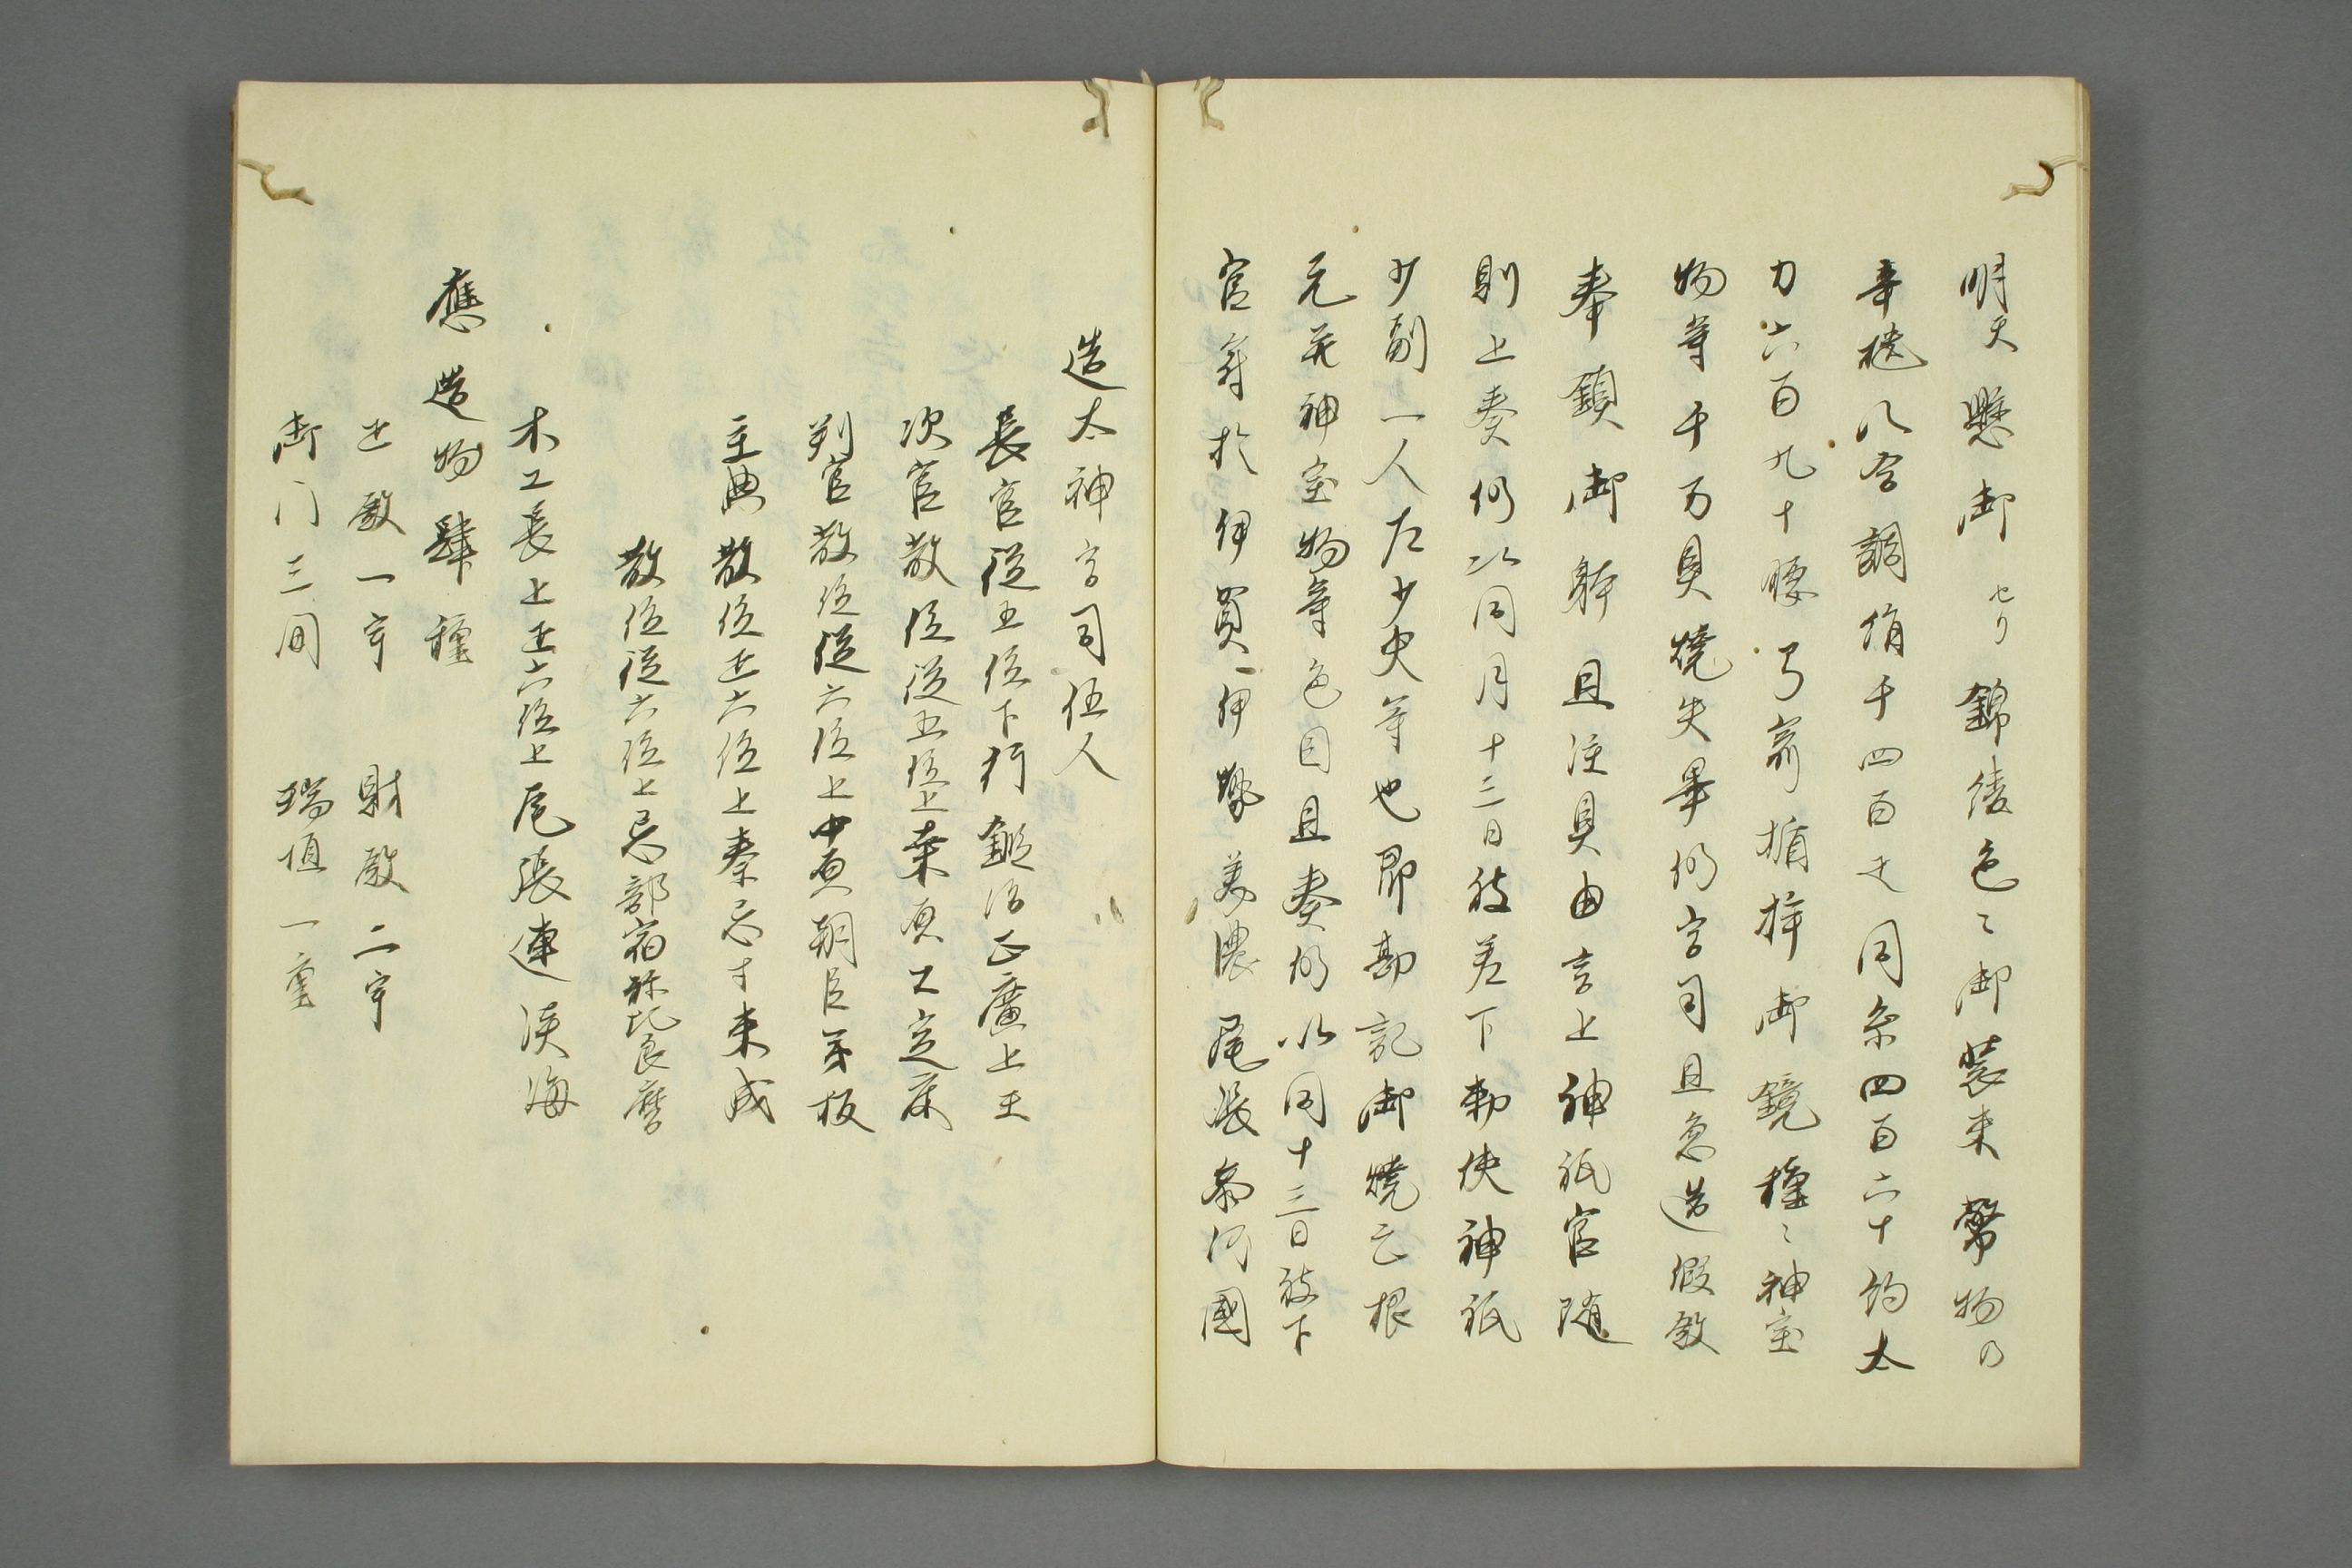 明天懸御セリ錦綾色〻御装束幣物乃
辛櫃八合調絹千四百疋同糸四百六十絇太
刀六百九十腰弓箭楯桙御鏡種〻神宝
物等千万具焼失畢仍宮司且忽造假殿
奉鎮御躰且注具由言上神祇官随
則上奏仍以同月十三日被差下勅使神祇
少副一人左少史等也即勘記御焼亡根
元并神宝物等色目且奏仍以同十三日被下
官符於伊賀伊勢美濃尾張参河國
造太神宮司伍人
長官従五位下行鍛冶正廣上王
次官散位従五位上桑原公足床
判官散位従六位上中臣朝臣弟枚
主典散位正六位上秦忌寸来成
散位従六位上忌部宿祢比良麿
木工長上正六位上尾張連淡海
應造物肆種
正殿一宇 財殿二宇
御门三间 瑞垣一重